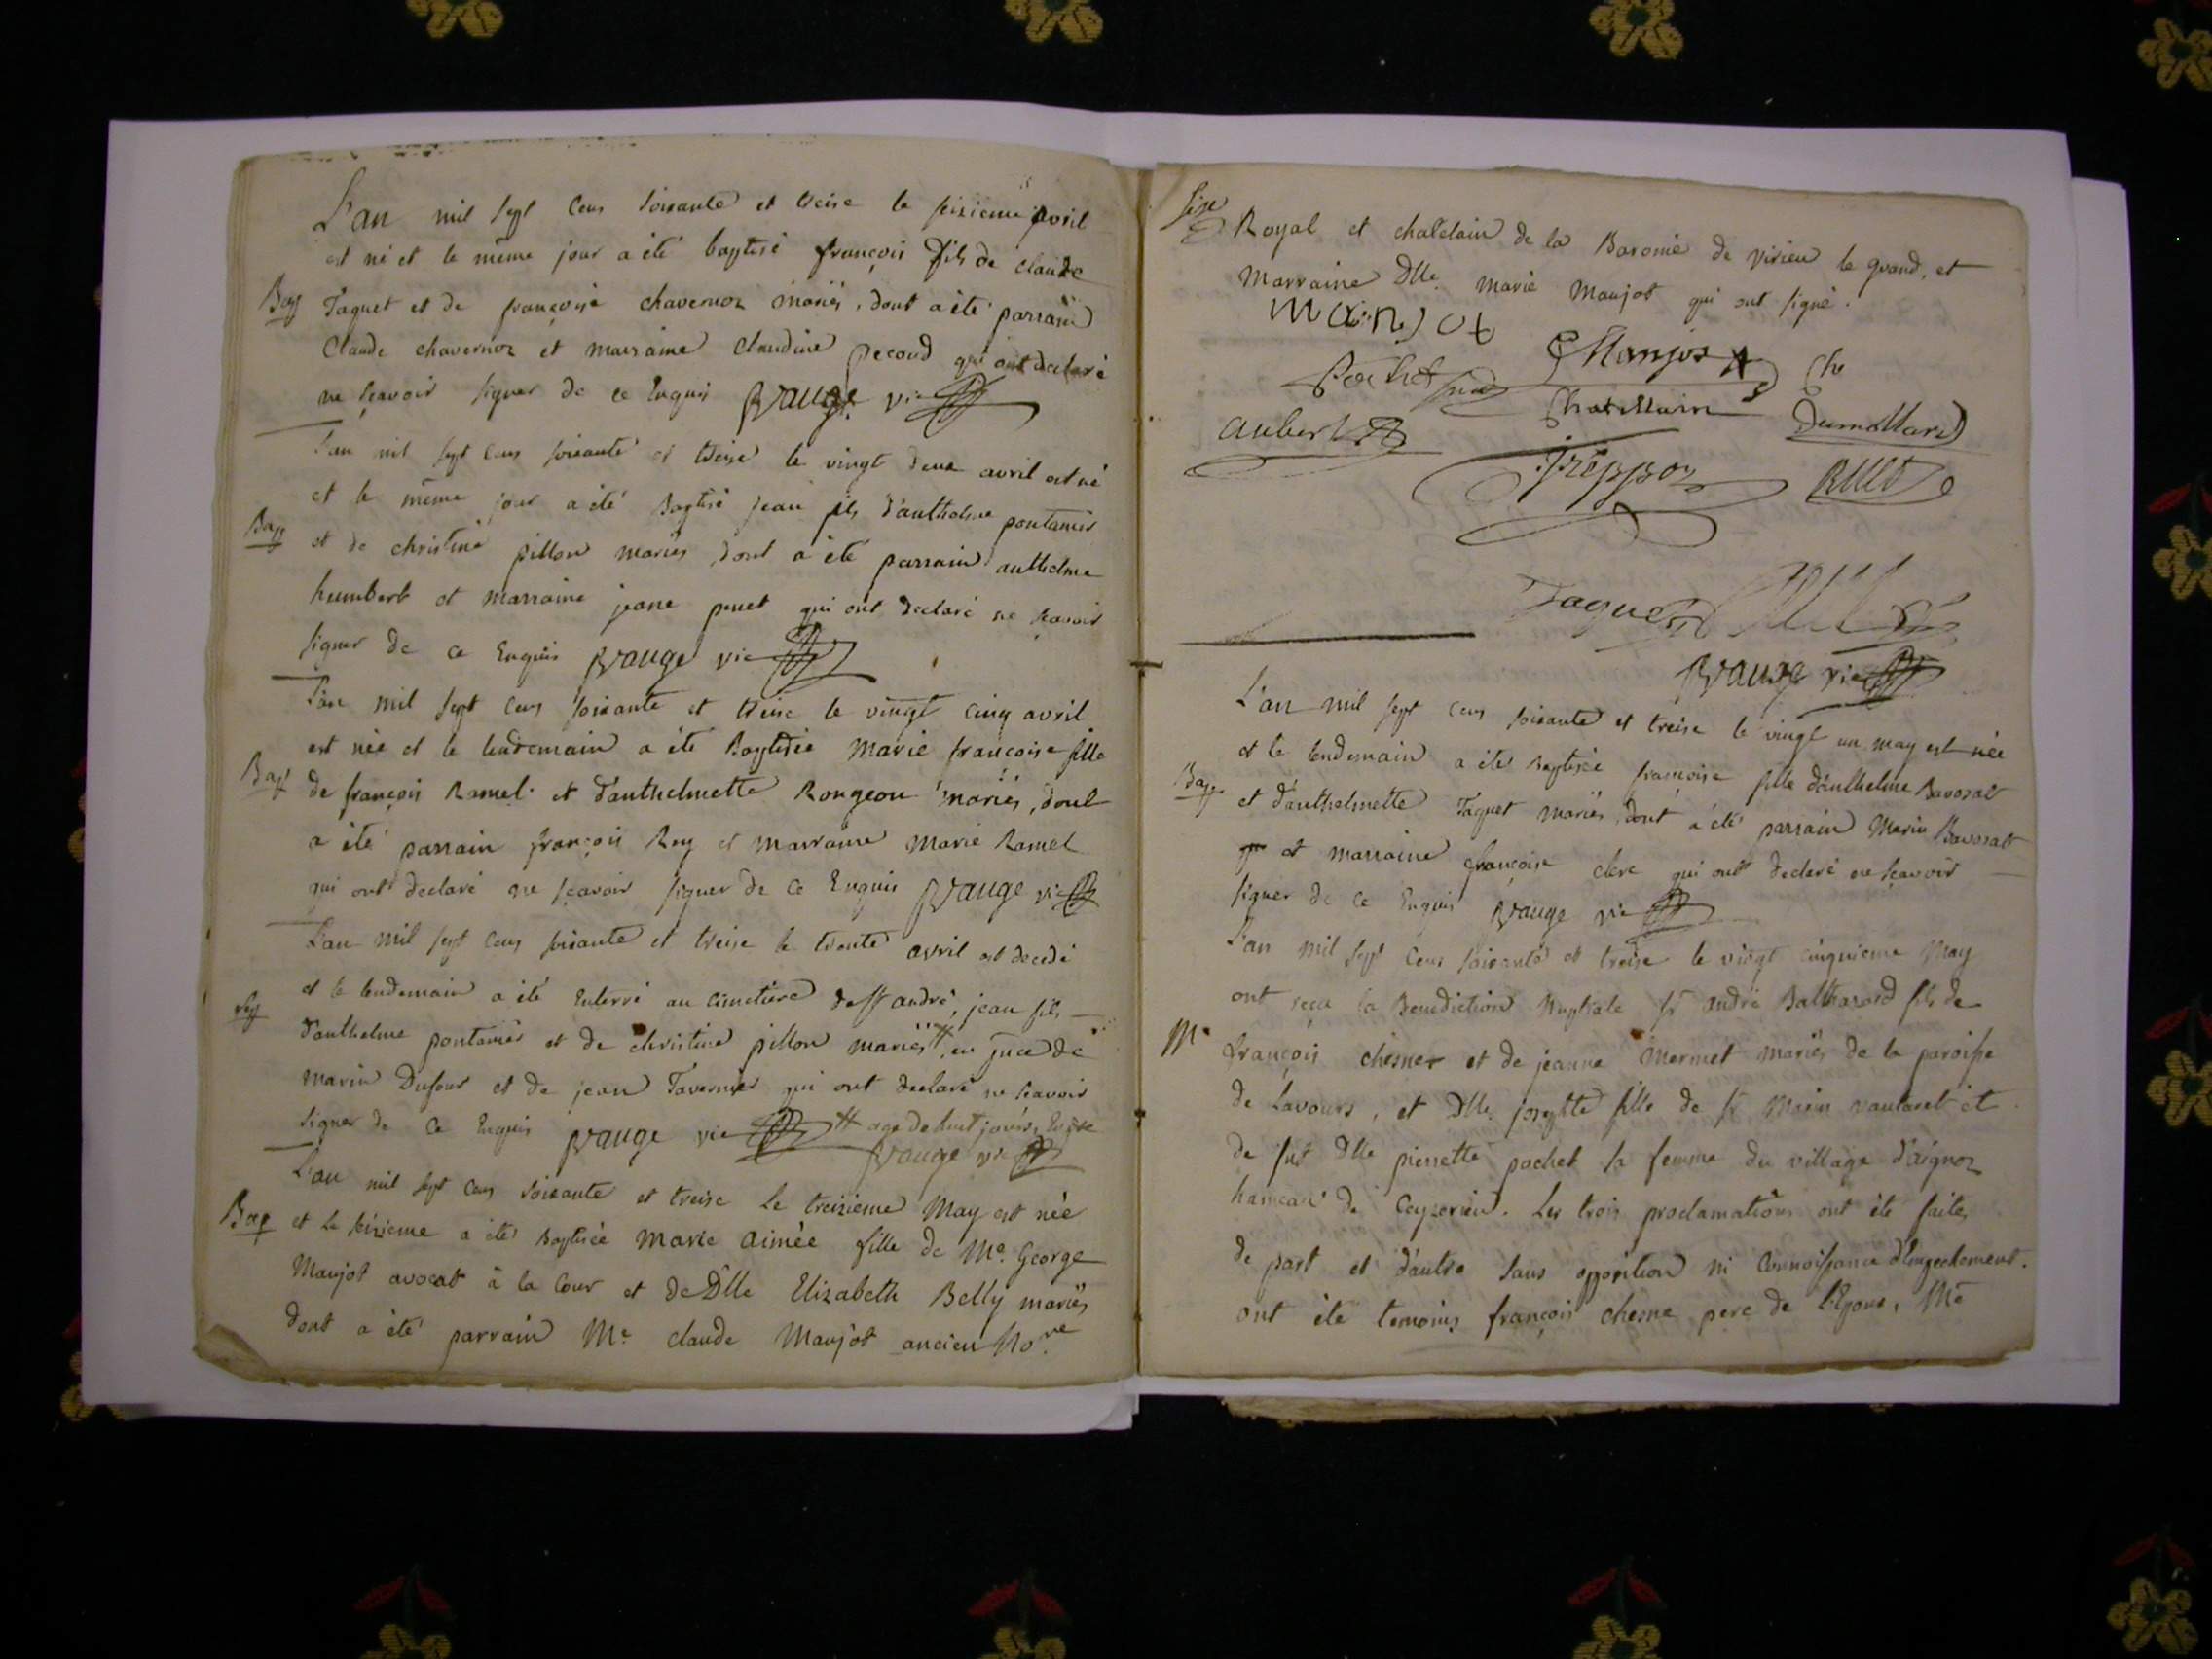 L'an mil sept cens soixante et treise le seizieme avril
est né et le même jour a été baptisé françois fils de claude
Bap Taquet et de françoise chavernoz mariés, dont a été parrain
Claude chavernoz et marraine Claudine pecoud qui ont declaré
ne sçavoir signer de ce Enquis Vauge vic
L'an mil sept cens soixante et treise le vingt deux avril est né
et le même jour a été Baptisé jean fils d'anthelme pontanier
Bap et de christine pillon mariés, dont a été parrain anthelme
humbert et marraine jeane penet qui ont declaré ne scavoir
signer de ce Enquis Vauge vic
L'an mil sept cens soixante et treise le vingt cinq avril
est née et le lendemain a été Baptisée Marie françoise fille
Bap de françois Ramel et d'anthelmette Rongeon mariés, dont
a été parrain françois Rey et marraine Marie Ramel
qui ont declaré ne sçavoir signer de ce Enquis Vauge vic
L'an mil sept cens soixante et treise le trente avril est decedé
et le lendemain a été Enterré au cimetiere de st andré, jean fils
Sep d'anthelme pontanier et de christine pillon mariés # en pnce de
Marin Dufour et de jean Tavernier qui ont declaré ne scavoir
signer de ce Enquis Vauge vic # agé de huit jours
Vauge vic
L'an mil sept cens soixante et treise le treizieme May est née
Bap et le seizieme a été Baptisée Marie Aimée fille de Me. George
Maujot avocat à la Cour et de Dlle Elizabeth Belly mariés
dont a été parrain Me. claude Maujot ancien No.re
Royal et chatelain de la Baronie de virieu le grand, et
Marraine Dlle. Marie Maujot qui ont signé.
Maujot
Maujot
Pochet
Chatillain
aubert
Dumollard
Treppoz
Taquet
Vauge vic
L'an mil sept cens soixante et treise le vingt un may est née
et le lendemain a été Baptisée françoise fille d'anthelme Bavozat
Bap et d'anthelmette Taquet mariés, dont a été parrain Marin Bavozat
et marraine françoise clerc qui ont declaré ne sçavoir
signer de ce Enquis Vauge vic
L'an mil sept cens soixante et treise le vingt cinquieme May
ont reçu la Benediction Nuptiale sr. andré Balthazard fils de
M. françois chesne et de jeanne Mermet mariés de la paroisse
de Lavours, et Dlle josephte fille de sr Marin vautaret et
de fut Dlle pierrette pochet sa femme du village d'aignoz
hameau de Ceyzerieu. Les trois proclamations ont été faites
de part et d'autre sans opposition ni Connoissance d'Empechement.
ont été temoins françois chesne pere de l'Epoux, Me